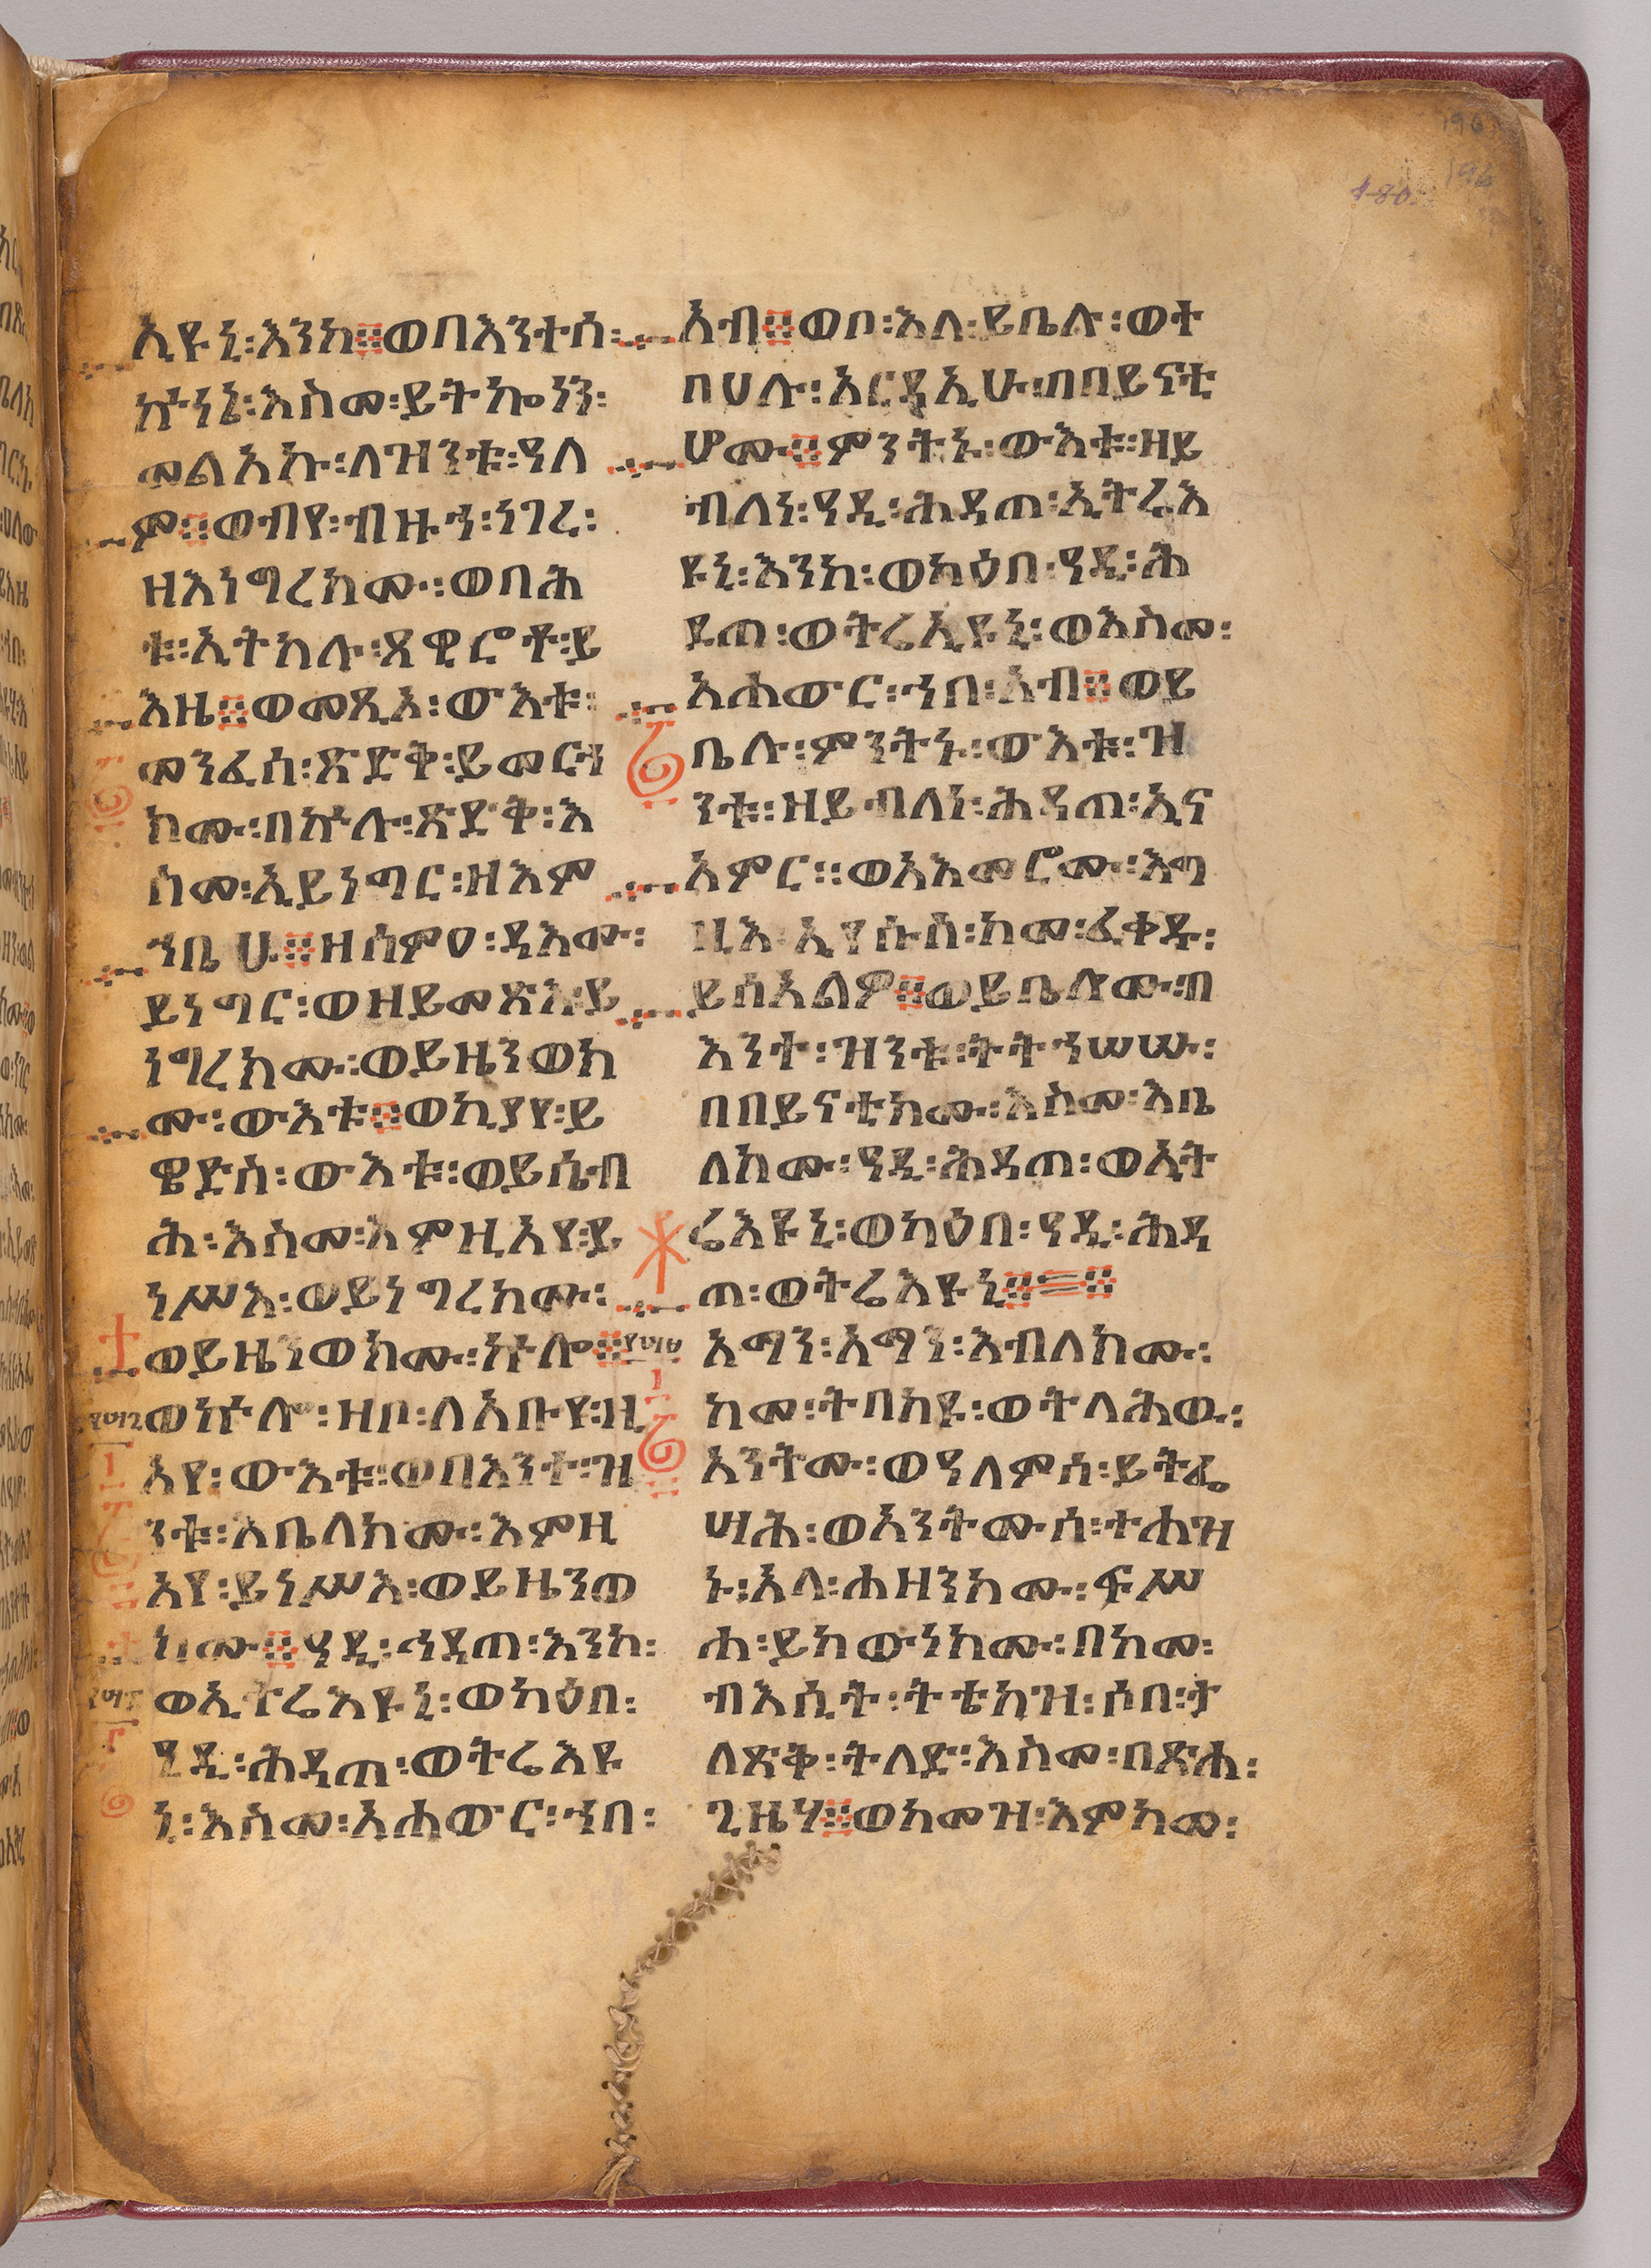 እዩኒ፡እንከ፨ወበእንተሰ፡
ኵነኔ፡እስመ፡ይትኴነን፡
መልአኩ፡ለዝንቱ፡ዓለ
ም፨ወብየ፡ብዙኀ፡ነገረ፡
ዘእነግረክሙ፡ወባሕ
ቱ፡ኢትክሉ፡ጸዊሮቶ፡ይ
እዜ፨ወመጺኦ፡ውእቱ፡
መንፈሰ፡ጽድቅ፡ይመርሃ
ክሙ፡በኵሉ፡ጽድቅ፡እ
ስመ፡ኢይነግር፡ዘእም
ኀቤሁ፨ዘሰምዐ፡ዳእሙ፡
ይነግር፡ወዘይመጽእ፡ይ
ነግረክሙ፡ወይዜንወክ
ሙ፡ውእቱ፨ወኪያየ፡ይ
ዌድስ፡ውእቱ፡ወይሴብ
ሕ፡እስመ፡እምዚአየ፡ይ
ነሥእ፡ወይነግረክሙ፡
ወይዜንወክሙ፡ኵሎ፨
ወኵሎ፡ዘቦ፡ለአቡየ፡ዚ
አየ፡ውእቱ፡ወበእንተ፡ዝ
ንቱ፡እቤለክሙ፡እምዚ
አየ፡ይነሥእ፡ወይዜንወ
ክሙ፨ዓዲ፡ኅዳጠ፡እንከ፡
ወኢትሬእዩኒ፡ወካዕበ፡
ዓዲ፡ሕዳጠ፡ወትሬእዩ
ኒ፡እስመ፡አሐውር፡ኀበ፡
አብ፨ወቦ፡እለ፡ይቤሉ፡ወት
በሀሉ፡አርዳኢሁ፡በበይናቲ
ሆሙ፨ምንትኑ፡ውእቱ፡ዘይ
ብለነ፡ዓዲ፡ሕዳጠ፡ኢትሬእ
ዩኒ፡እንከ፡ወካዕበ፡ዓዲ፡ሕ
ዳጠ፡ወትሬእዩኒ፡ወእስመ፡
አሐውር፡ኀበ፡አብ፨ወይ
ቤሉ፡ምንትኑ፡ውእቱ፡ዝ
ንቱ፡ዘይብለነ፡ሕዳጠ፡ኢና
አምር፡፡ወአእመሮሙ፡እግ
ዚእ፡ኢየሱስ፡ከመ፡ፈቀዱ፡
ይስአልዎ፨ወይቤሎሙ፡በ
እንተ፡ዝንቱ፡ትትኀሠሡ፡
በበይናቲክሙ፡እስመ፡እቤ
ለክሙ፡ዓዲ፡ሕዳጠ፡ወኢት
ሬእዩኒ፡ወካዕበ፡ዓዲ፡ሕዳ
ጠ፡ወትሬእዩኒ፨=፨
አማን፡አማን፡እብለክሙ፡
ከመ፡ትበክዩ፡ወትላሕዉ፡
አንትሙ፡ወዓለምሰ፡ይትፌ
ሣሕ፡ወአንትሙሰ፡ተሐዝ
ኑ፡አላ፡ሐዘንክሙ፡ፍሥ
ሐ፡ይከውነክሙ፡በከመ፡
ብእሲት፡ትቴክዝ፡ሶበ፡ት
ለጽቅ፡ትለድ፡እስመ፡በጽሐ፡
ጊዜሃ፨ወከመዝ፡እምከመ፡